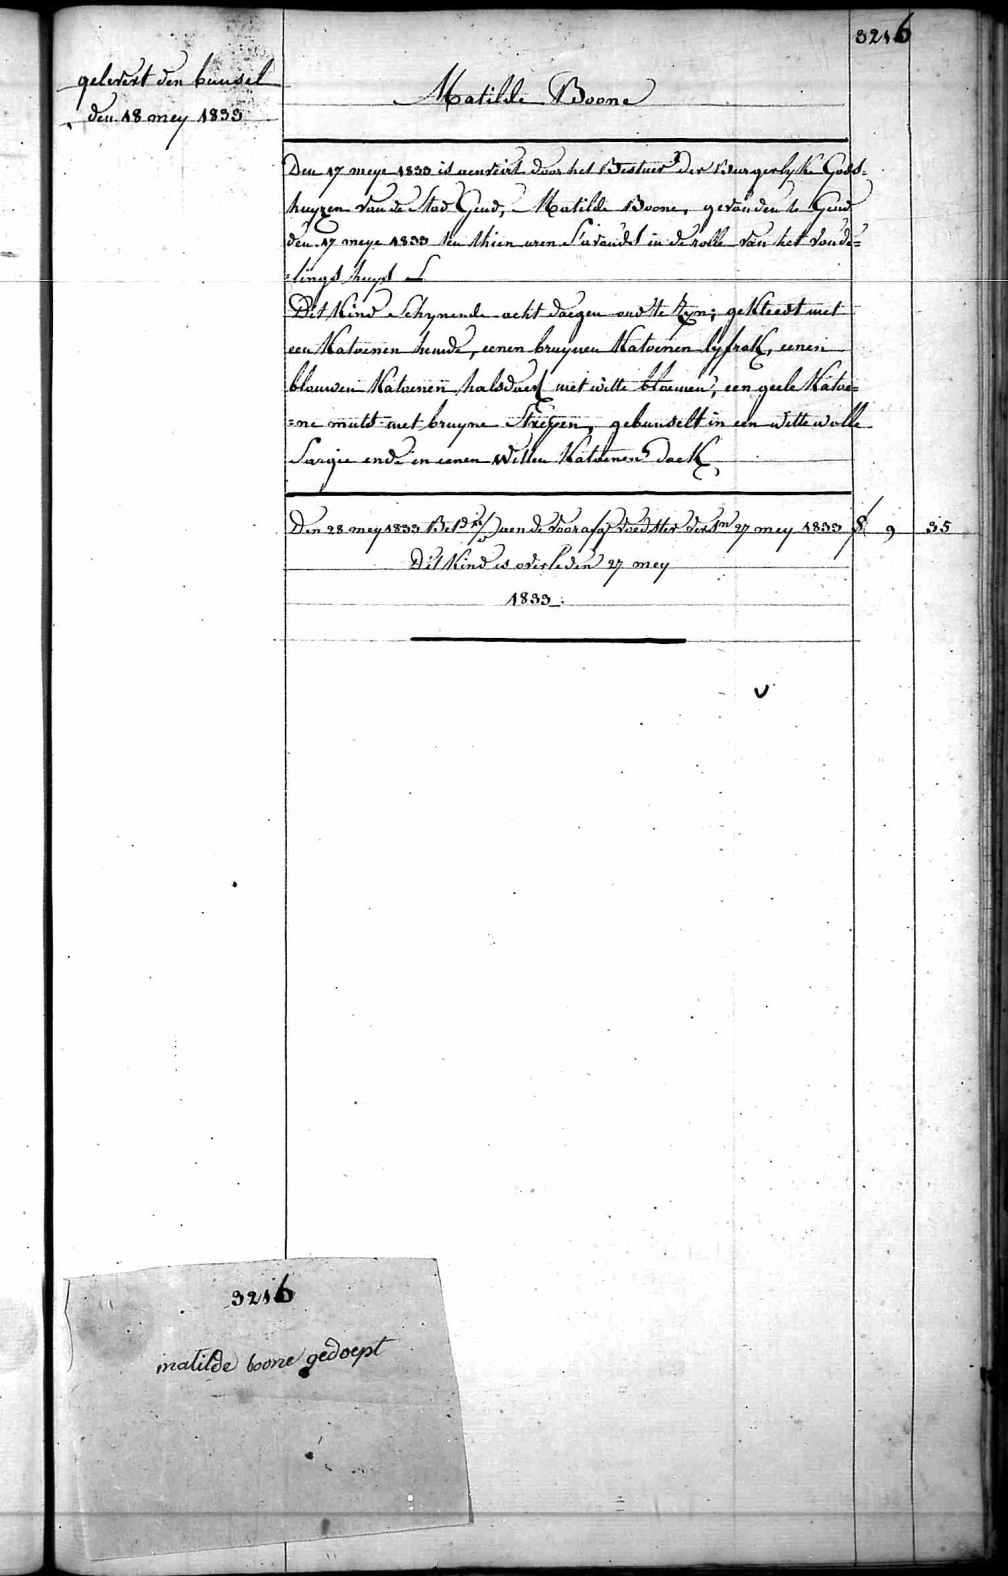 3216
gelevert den bunsel
den 18 mey 1833
Matilde Boone
Den 17 meye 1833 is aenveirt door het Bestuer der Burgerlyke Gods=
huyzen van de Stad Gend, Matilde Boone, gevonden te Gend
den 17 meye 1833 ten thien uren S'avonds in de rolle van het vonde=
=lings huys
Dit Kind Schynende acht daegen oud te Zyn; gekleedt met
een Katoenen hemde, eenen bruynen Katoenen lyfrok, eenen
blauwen Katoenen halsdoek met witte bloemen, een geele Katoe=
=ne muts met bruyne Streepen, gebunselt in een witte wolle
Sargie ende in eenen Witten Katoenen doek
Den 28 mey 1833 aen de voorafg voedster 27 mey 1833 9 35
Dit Kind is overleden 27 mey
1833.
3216
matilde boone gedoept